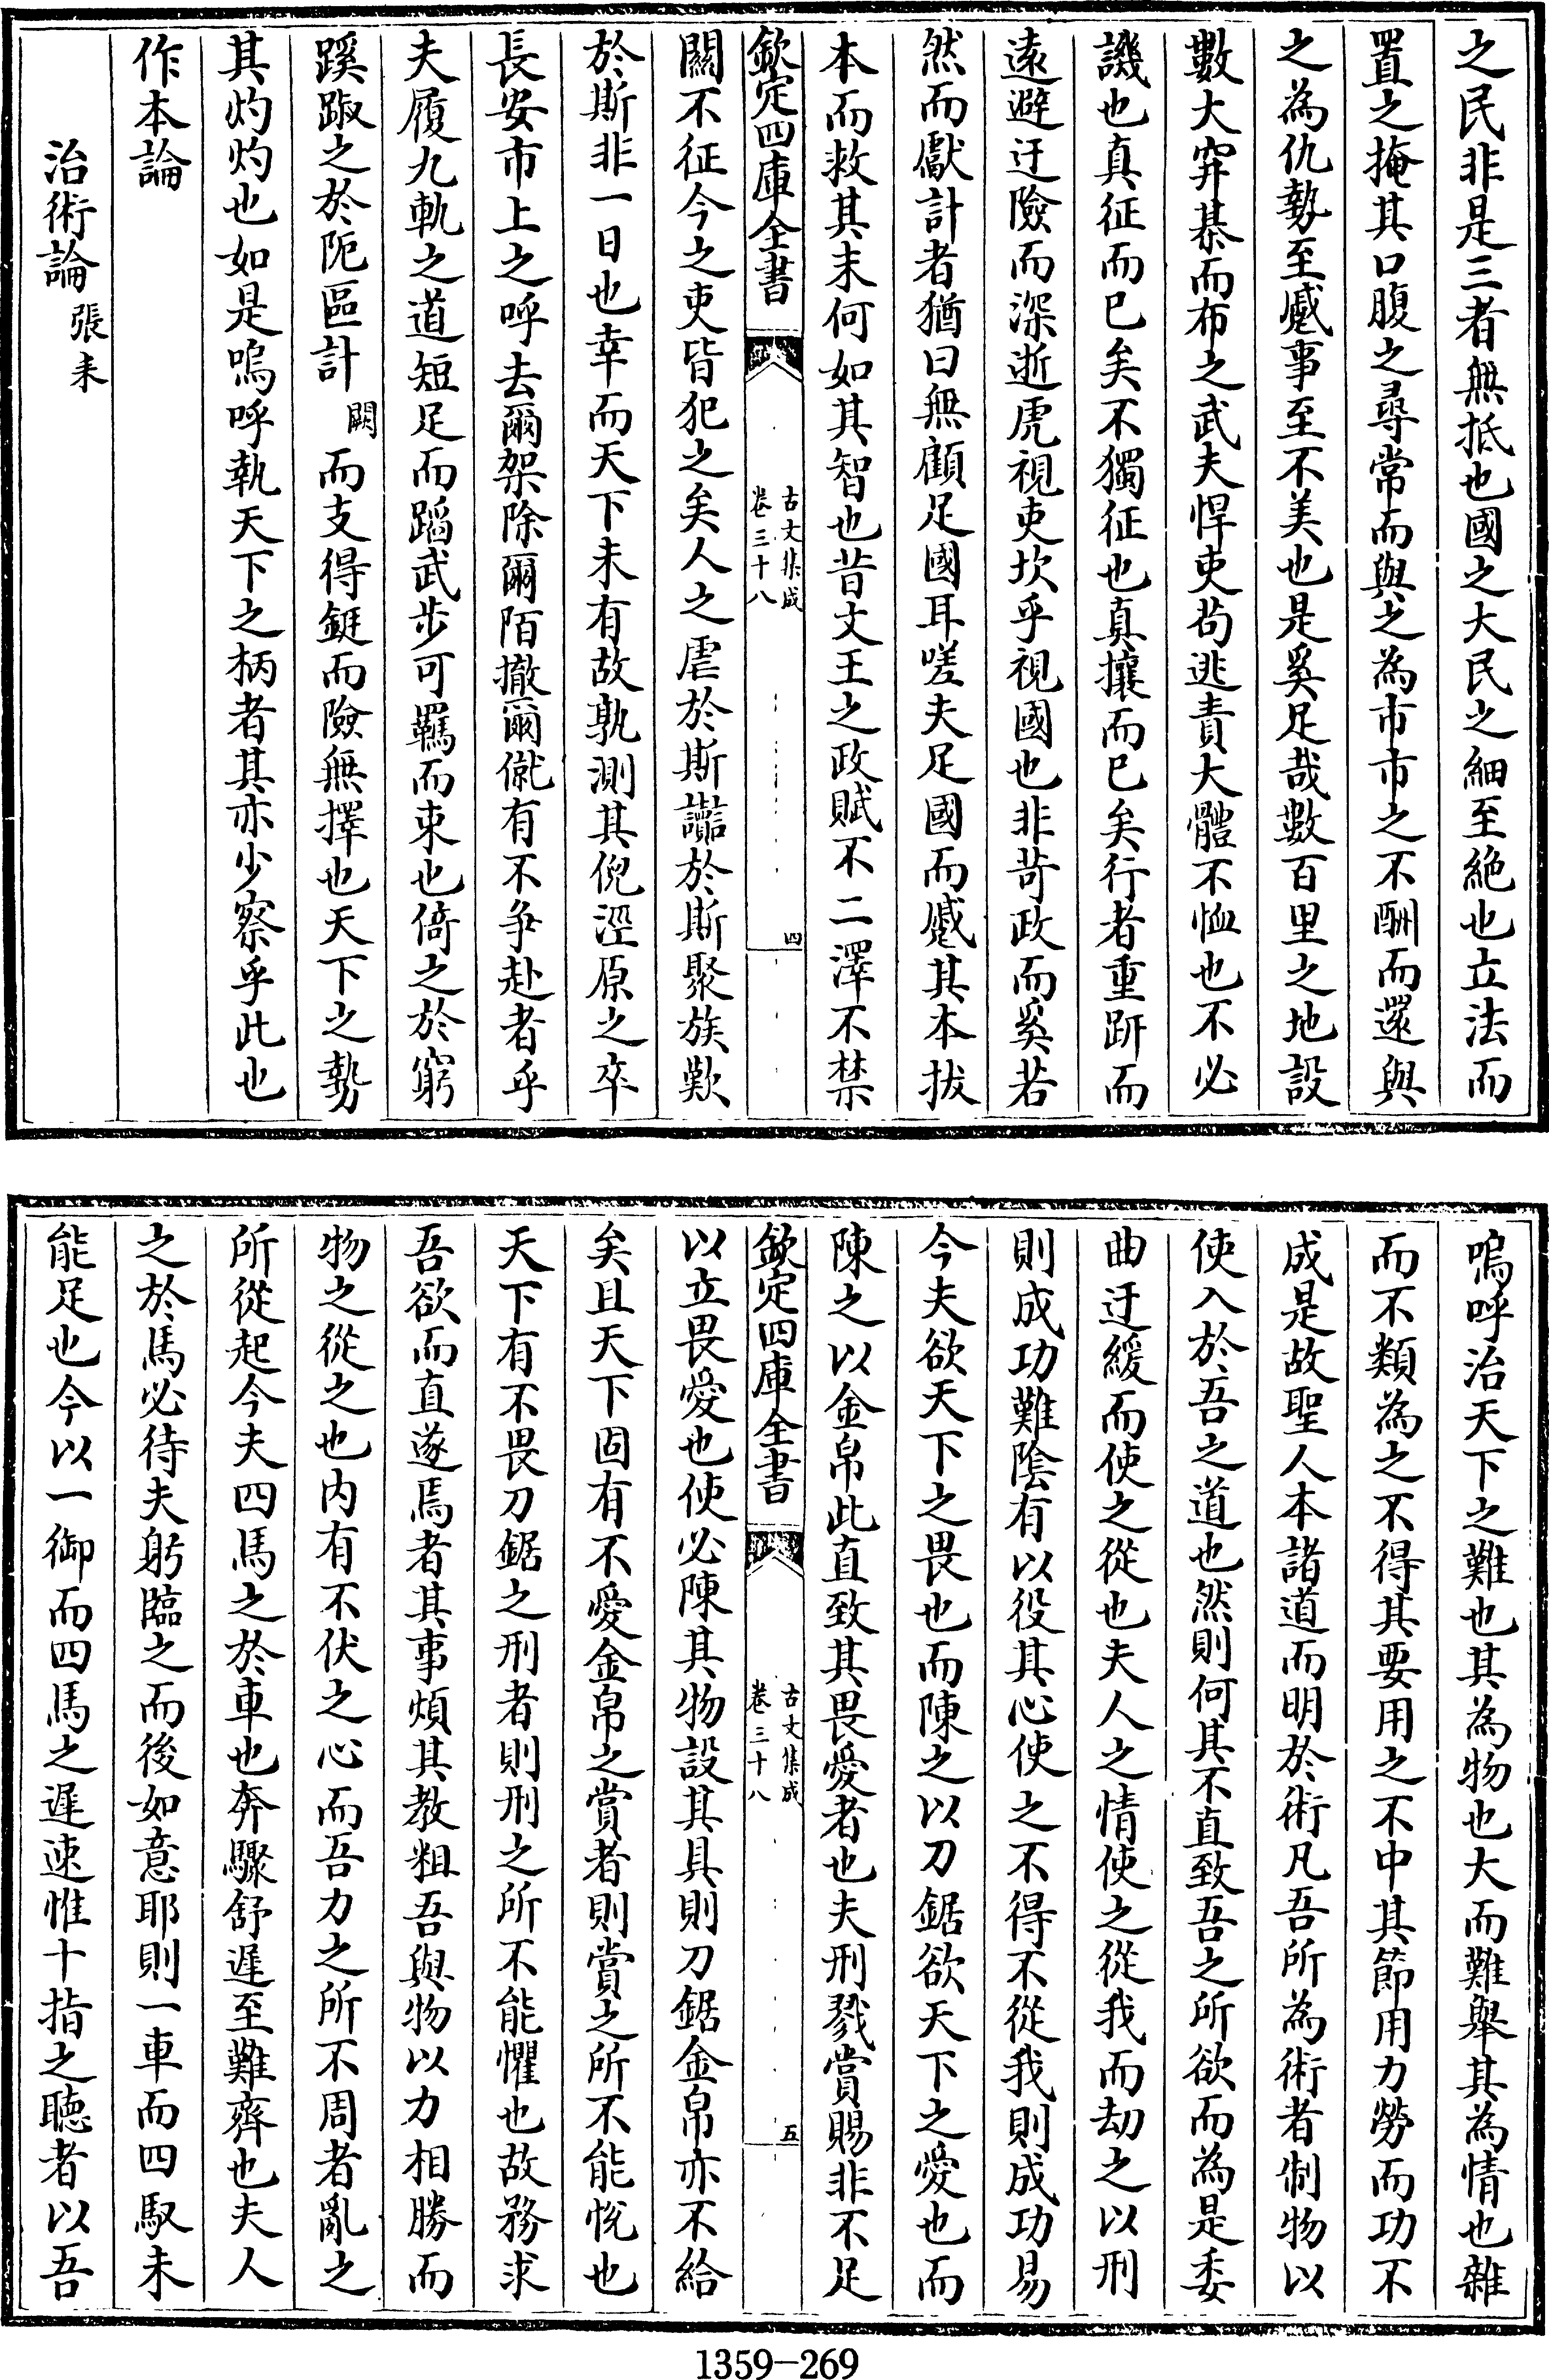 之民非是三者無抵也國之大民之細至絕也立法而
置之掩其口腹之尋常而與之為市市之不酬而還與
之為仇勢至慼事至不美也是奚足哉數百里之地設
數大穽暴而布之武夫悍吏苟逃責大體不恤也不必
譏也真征而已矣不獨征也真攘而已矣行者重趼而
遠避迂險而深逝虎視吏坎乎視國也非苛政而奚若
然而獻計者猶曰無顧足國耳嗟夫足國而慼其本拔
本而救其末何如其智也昔文王之政賦不二澤不禁
欽定四庫全書
古文集成
卷三十八
四
關不征今之吏皆犯之矣人之虐於斯讟於斯聚族歎
於斯非一日也幸而天下未有故孰測其倪涇原之卒
長安市上之呼去爾架除爾陌撤爾僦有不争赴者乎
夫履九軌之道短足而蹈武步可羈而束也倚之於窮
蹊踧之於阨區計闕而支得鋌而險無擇也天下之勢
其灼灼也如是嗚呼執天下之柄者其亦少察乎此也
作本論
治術論 張耒
嗚呼治天下之難也其為物也大而難舉其為情也雜
而不類為之不得其要用之不中其節用力勞而功不
成是故聖人本諸道而明於術凡吾所為術者制物以
使入於吾之道也然則何其不直致吾之所欲而為是委
曲迂緩而使之從也夫人之情使之從我而劫之以刑
則成功難陰有以役其心使之不得不從我則成功易
今夫欲天下之畏也而陳之以刀鋸欲天下之愛也而
陳之以金帛此直致其畏愛者也夫刑戮賞賜非不足
欽定四庫全書
古文集成
卷三十八
五
以立畏愛也使必陳其物設其具則刀鋸金帛亦不給
矣且天下固有不愛金帛之賞者則賞之所不能悅也
天下有不畏刀鋸之刑者則刑之所不能懼也故務求
吾欲而直遂焉者其事煩其教粗吾與物以力相勝而
物之從之也内有不伏之心而吾力之所不周者亂之
所從起今夫四馬之於車也奔驟舒遲至難齊也夫人
之於馬必待夫躬臨之而後如意耶則一車而四馭未
能足也今以一御而四馬之遲速惟十指之聽者以吾
1359-269